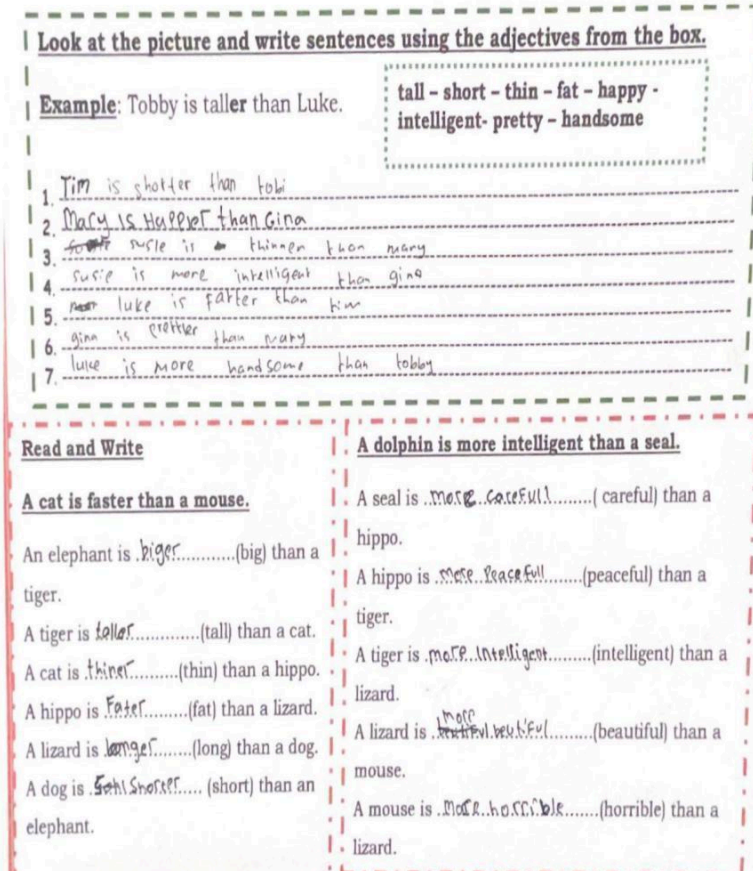 Look at the picture and write sentences using the adjectives from the box.
Example: Tobby is taller than Luke.
tall – short – thin – fat – happy -
intelligent- pretty – handsome
1. Tim is shotter than tobi
2. Mary Is Happier than Gina
3. susie is thinner than mary
4. susie is more intelligent than gina
5. luke is fatter than tim
6. gina is prettier than mary
7. luke is more handsome than tobby
Read and Write
A cat is faster than a mouse.
An elephant is .biger............(big) than a
tiger.
A tiger is taller.............(tall) than a cat.
A cat is .thiner.........(thin) than a hippo.
A hippo is Fater........(fat) than a lizard.
A lizard is longer........(long) than a dog.
A dog is . Shorter..... (short) than an
elephant.
A dolphin is more intelligent than a seal.
A seal is ..more carefull.........( careful) than a
hippo.
A hippo is ..more Peacefull........(peaceful) than a
tiger.
A tiger is .more Intelligent.........(intelligent) than a
lizard.
A lizard is .more beutiful.........(beautiful) than a
mouse.
A mouse is ..more horrible.......(horrible) than a
lizard.